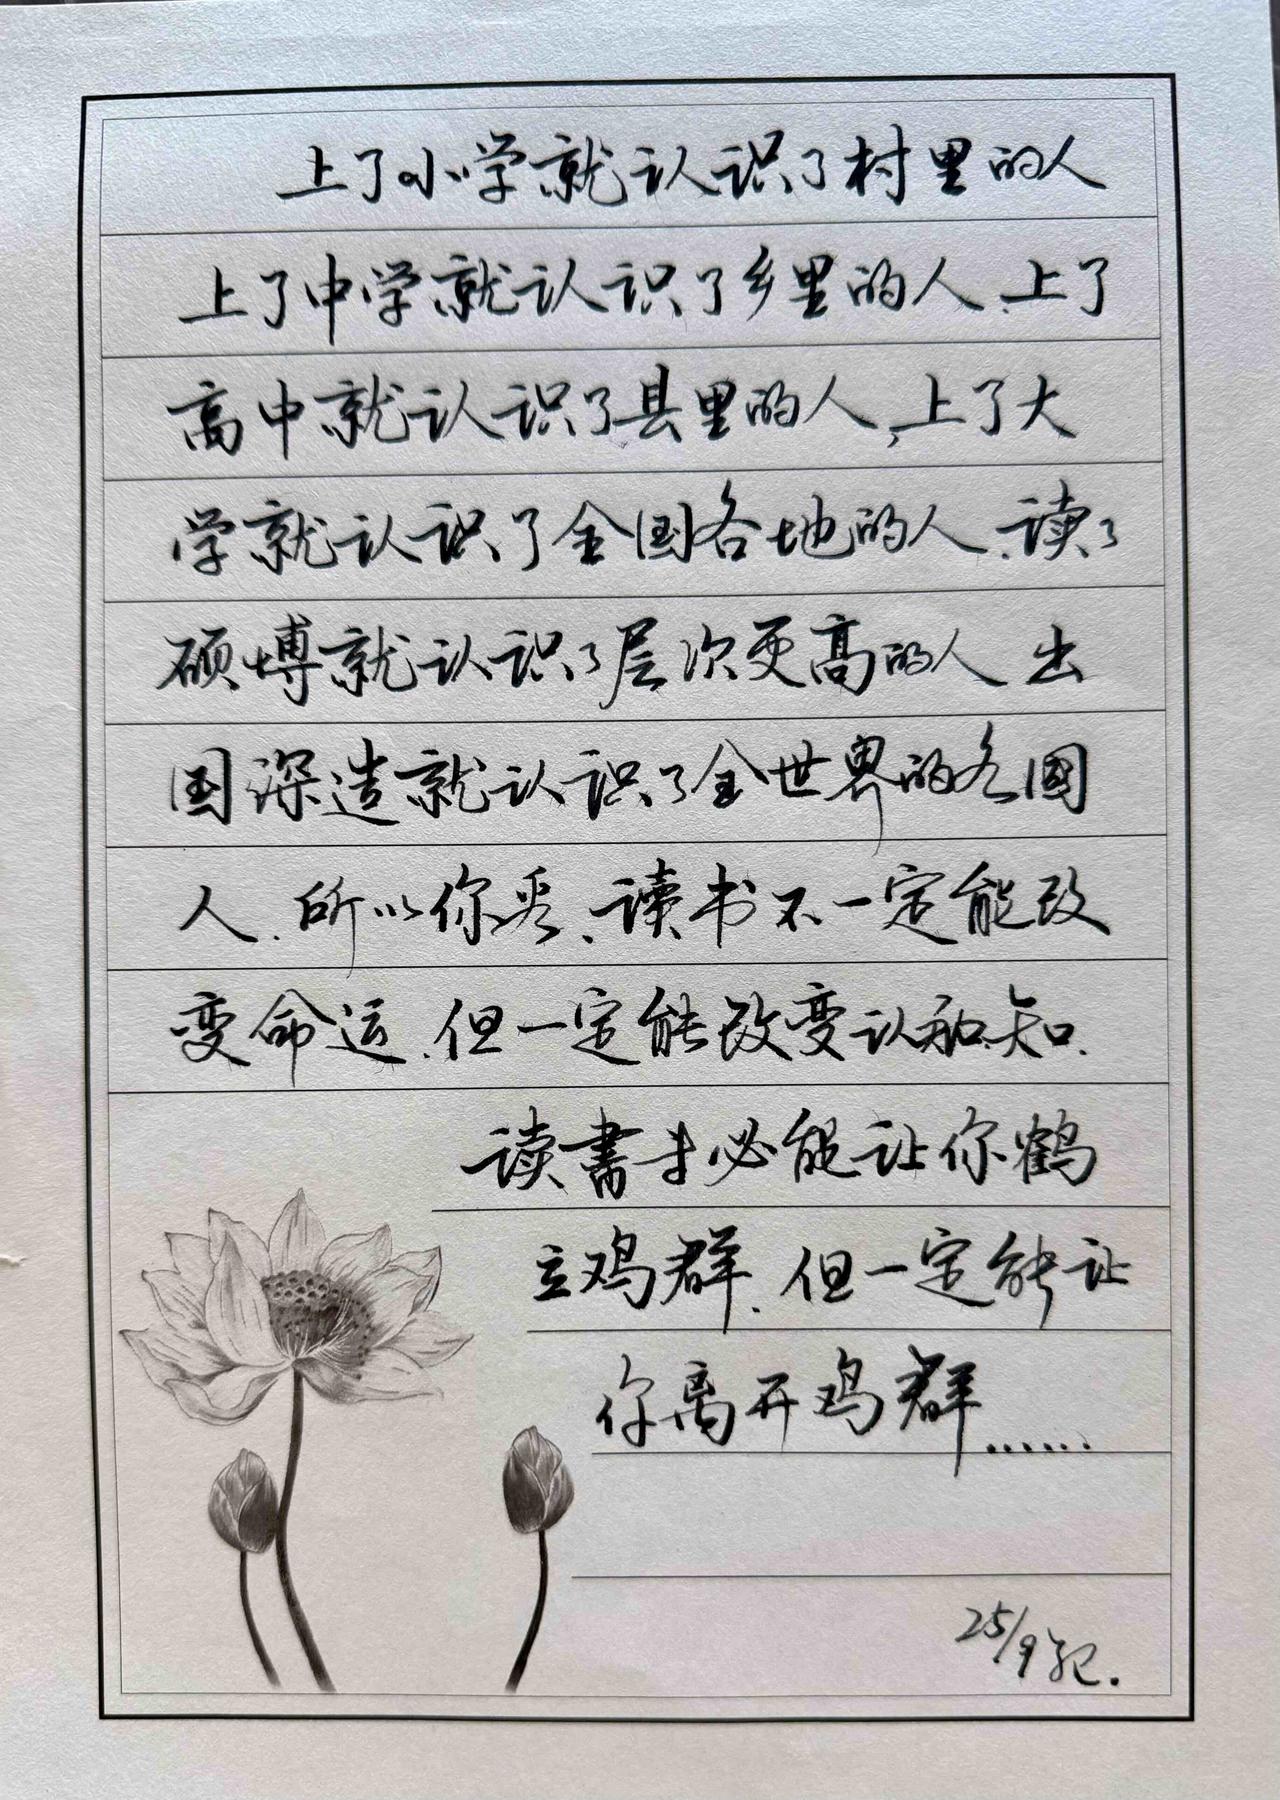 上了小学就认识了村里的人
上了中学就认识了乡里的人、上了
高中就认识了县里的人，上了大
学就认识了全国各地的人、读了
硕博就认识了层次更高的人 出
国深造就认识了全世界的各国
人、所以你看、读书不一定能改
变命运、但一定能改变认和知、
读书未必能让你鹤
立鸡群、但一定能让
你离开鸡群……
25/9记.